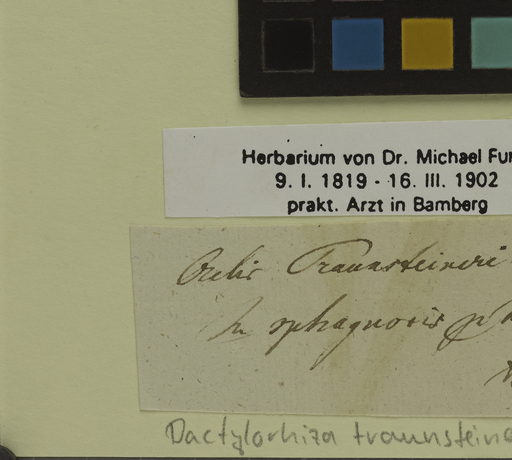 Herbarium von Dr. Michael Fun
9. I. 1819 - 16. III. 1902
prakt. Arzt in Bamberg
Orchis Traunsteineri
In sphagnosis
Dactylorhiza traunsteine